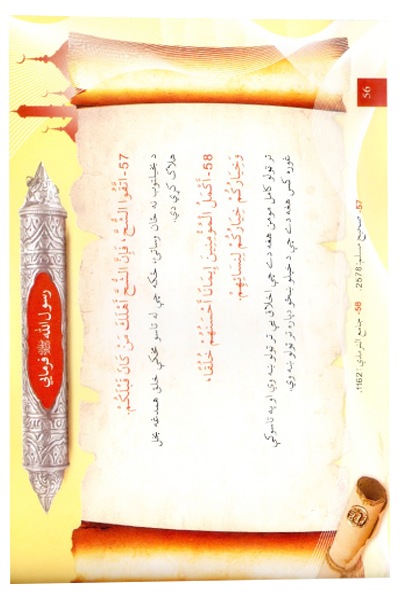 رسول الله ﷺ فرمایي
57- اتَّقُوا الشُّحَّ، فَإِنَّ الشُّحَّ أَهْلَكَ مَنْ كَانَ قَبْلَكُمْ.
د بخیلتوب نه ځان وساتئ، ځکه چې له تاسو مخکې خلق همدغه بخل
هلاک کړي دي.
58- أَكْمَلُ الْمُؤْمِنِينَ إِيمَانًا أَحْسَنُهُمْ خُلُقًا،
وَخِيَارُكُمْ خِيَارُكُمْ لِنِسَائِهِمْ.
تر ټولو کامل مومن هغه دے چې اخلاق یې تر ټولو ښه وي او په تاسو کې
غوره کس هغه دے چې د خپلو ښځو دپاره تر ټولو ښه وي.
57- صحیح مسلم: 2578. 58- جامع الترمذي: 1162.
56